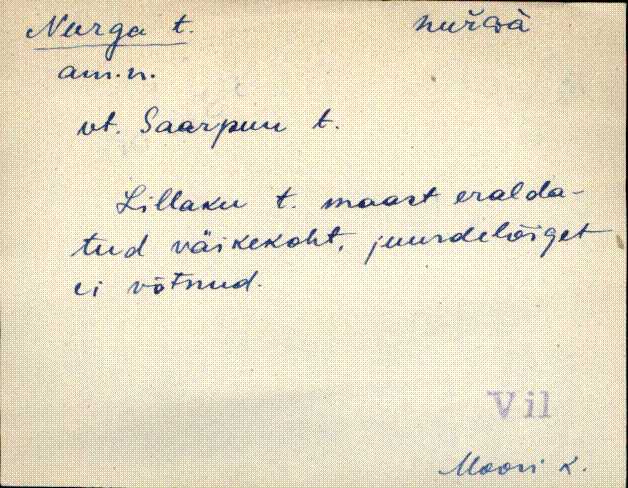 Nurga t. nurǥà
am.n.
vt. Saarpuu t.
Lillaku t. maast eralda-
tud väikekoht, juurdelõiget
ei võtnud.
Vil
Moori k.